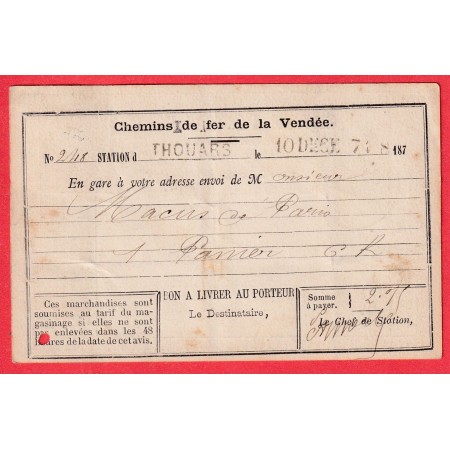 Chemins de fer de la Vendée.
No 248 STATION d THOUARS le 10 DECE 71 187
En gare à votre adresse envoi de M onsieur
Macus de Paris
1 Panier
BON A LIVRER AU PORTEUR
Le Destinataire,
Ces marchandises sont
soumises au tarif du ma-
gasinage si elles ne sont
pas enlevées dans les 48
heures de la date de cet avis.
Somme
à payer. 2.95
Le Chef de Station,